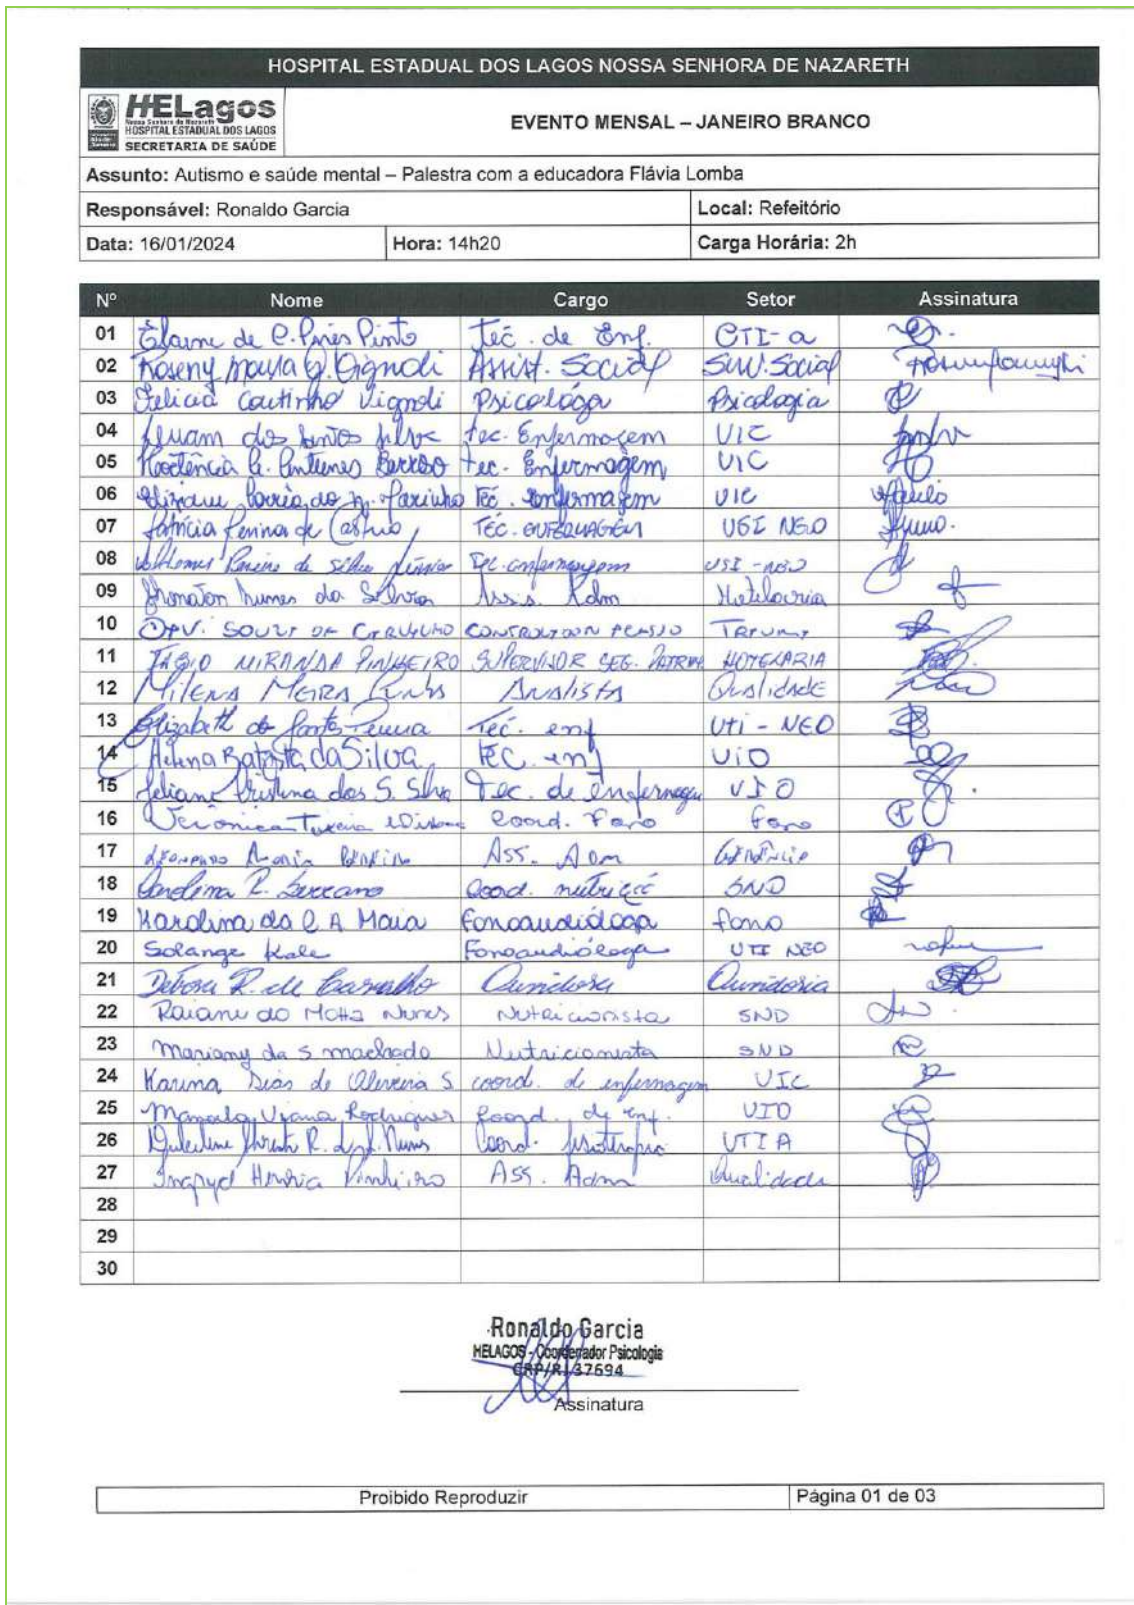 HOSPITAL ESTADUAL DOS LAGOS NOSSA SENHORA DE NAZARETH
HELagos
Nossa Senhora de Nazareth
HOSPITAL ESTADUAL DOS LAGOS
SECRETARIA DE SAÚDE
EVENTO MENSAL – JANEIRO BRANCO
Assunto: Autismo e saúde mental – Palestra com a educadora Flávia Lomba
Responsável: Ronaldo Garcia Local: Refeitório
Data: 16/01/2024 Hora: 14h20 Carga Horária: 2h
Nº Nome Cargo Setor Assinatura
01 Elaine de C. Pires Pinto Tec. de Enf. CTI-a
02 Roseny Assist. Social Serv. Social
03 Felicia Coutinho Vignoli Psicologa Psicologia
04 Luam dos Santos Silva Tec. Enfermagem UIC
05 Hortência Antunes Tec. Enfermagem UIC
06 Marinho Tec. enfermagem UIC
07 Patrícia de Castro TÉC. ENFERMAGEM
08 da Silva Tec enfermagem
09 Jhonaton Nunes da Assis. Adm Hotelaria
10
11 FÁBIO MIRANDA PINHEIRO SUPERVISOR SEG. HOTELARIA
12 MILENA MEIRA Analista Qualidade
13 Elizabeth Tec. enf Uti - NEO
14 Helena Batista da Silva TEC. enf UiO
15 Cristina dos S. Silva Tec. de enfermagem UIO
16 Verônica Teixeira Coord. Fono Fono
17 Ass. Adm
18 Carolina R. Serrano Coord. nutrição SND
19 Karolina da C A Maia Fonoaudióloga fono
20 Solange Kale Fonoaudióloga UTI NEO
21 Debora R. de Carvalho Ouvidora Ouvidoria
22 Raiane do Motta Nunes Nutricionista SND
23 Mariany da S machado Nutricionista SND
24 Karina Dias de Oliveira S coord. de enfermagem UIC
25 Viana Rodrigues Coord. de enf. UIO
26 R. Nunes Coord. fisioterapia UTI A
27 Pinheiro Ass. Adm Qualidade
28
29
30
Ronaldo Garcia
HELAGOS - Coordenador Psicologia
CRP/RJ 37694
Assinatura
Proibido Reproduzir Página 01 de 03